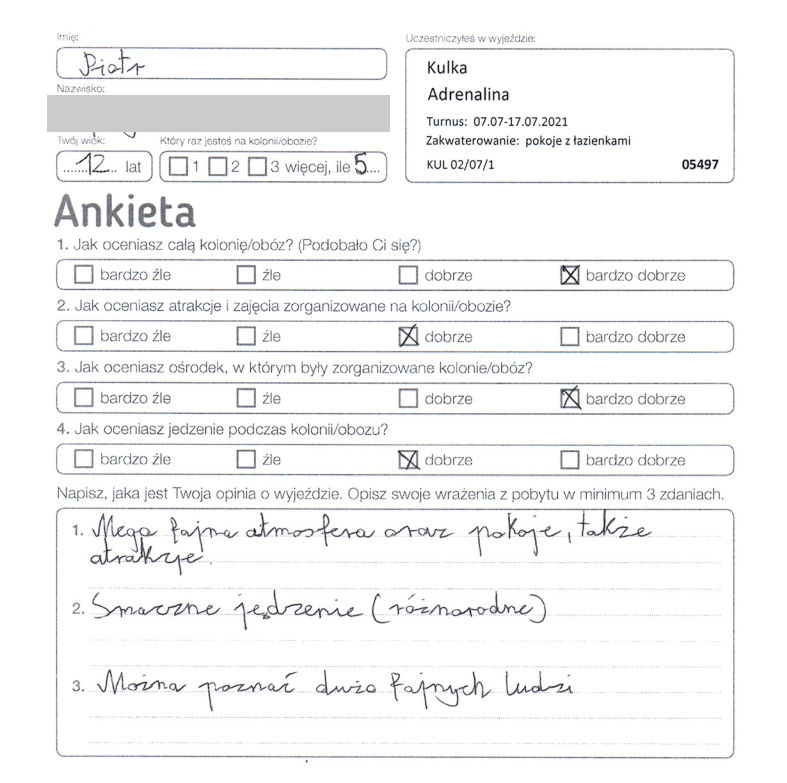 Imię:
Piotr
Nazwisko:
Twój wiek:
12 lat
Który raz jesteś na kolonii/obozie?
1 2 3 więcej, ile 5
Uczestniczyłeś w wyjeździe:
Kulka
Adrenalina
Turnus: 07.07-17.07.2021
Zakwaterowanie: pokoje z łazienkami
KUL 02/07/1 05497
Ankieta
1. Jak oceniasz całą kolonię/obóz? (Podobało Ci się?)
bardzo źle źle dobrze bardzo dobrze
2. Jak oceniasz atrakcje i zajęcia zorganizowane na kolonii/obozie?
bardzo źle źle dobrze bardzo dobrze
3. Jak oceniasz ośrodek, w którym były zorganizowane kolonie/obóz?
bardzo źle źle dobrze bardzo dobrze
4. Jak oceniasz jedzenie podczas kolonii/obozu?
bardzo źle źle dobrze bardzo dobrze
Napisz, jaka jest Twoja opinia o wyjeździe. Opisz swoje wrażenia z pobytu w minimum 3 zdaniach.
1. Mega fajna atmosfera oraz pokoje, także
atrakcje.
2. Smaczne jędzenie (różnorodne)
3. Można poznać dużo fajnych ludzi